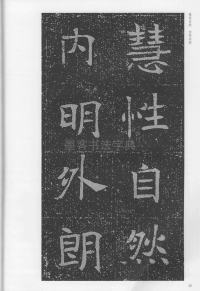 慧性自然
内明外朗
墨客书法字典